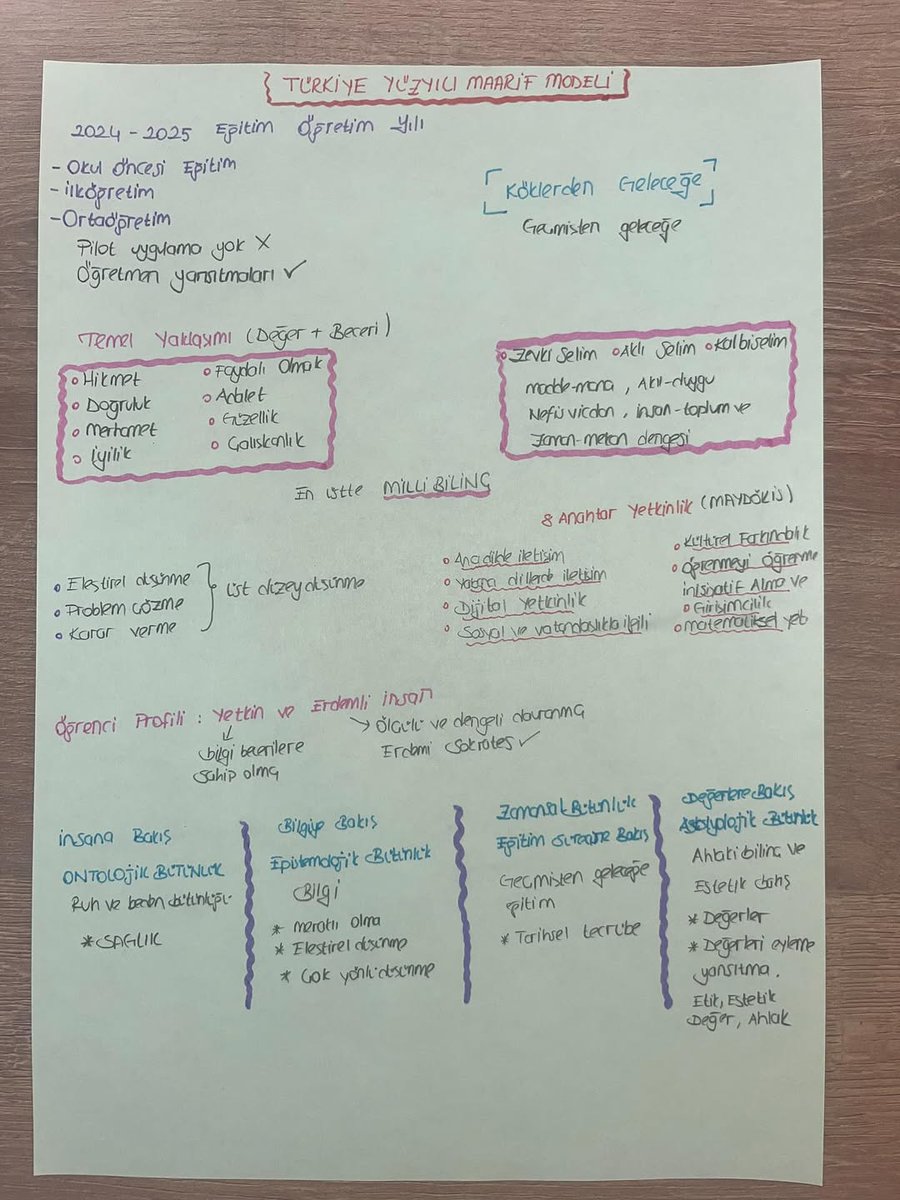 TÜRKİYE YÜZYILI MAARİF MODELİ
2024 - 2025 Eğitim Öğretim Yılı
- Okul Öncesi Eğitim
- İlköğretim
- Ortaöğretim
Pilot uygulama yok X
Öğretmen yansıtmaları ✓
Köklerden Geleceğe
Geçmişten geleceğe
Temel Yaklaşımı (Değer + Beceri)
Hikmet
Doğruluk
Merhamet
İyilik
Faydalı Olmak
Adalet
Güzellik
Çalışkanlık
Zevki Selim Aklı Selim Kalbiselim
madde-mana, Akıl-duygu
Nefis vicdan, insan-toplum ve
Zaman-mekan dengesi
En üstte MİLLİ BİLİNÇ
8 Anahtar Yetkinlik (MAYDÖKİS)
Eleştirel düşünme
Problem çözme
Karar verme
üst düzey düşünme
Anadilde iletişim
Yabancı dillerde iletişim
Dijital Yetkinlik
Sosyal ve vatandaşlıkla ilgili
Kültürel Farkındalık
Öğrenmeyi Öğrenme
İnisiyatif Alma ve
Girişimcilik
matematiksel yet
Öğrenci Profili : Yetkin ve Erdemli insan
bilgi becerilere
sahip olma
Ölçülü ve dengeli davranma
Erdemi Sokrates ✓
İnsana Bakış
ONTOLOJİK BÜTÜNLÜK
Ruh ve beden bütünlüğü
* SAĞLIK
Bilgiye Bakış
Epistemolojik Bütünlük
Bilgi
* meraklı olma
* Eleştirel düşünme
* Çok yönlü düşünme
Zamansal Bütünlük
Eğitim Sürecine Bakış
Geçmişten geleceğe
eğitim
* Tarihsel tecrübe
Değerlere Bakış
Aksiyolojik Bütünlük
Ahlaki bilinç ve
Estetik bakış
* Değerler
* Değerleri eyleme
yansıtma.
Etik, Estetik
Değer, Ahlak